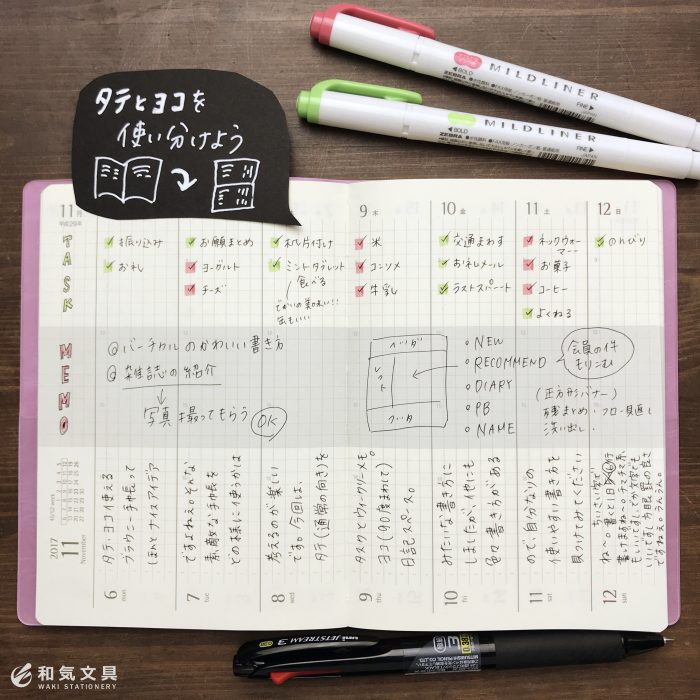 MILDLINER
BOLD
ZEBRA
FINE
MILDLINER
BOLD
ZEBRA
FINE
タテとヨコを
使い分けよう
11月
平成29年
9 木
10 金
11 土
12 日
TASK
振り込み
お礼
お願まとめ
ヨーグルト
チーズ
机片付け
ミントタブレット
食べる
米
コンソメ
牛乳
交通まわす
お礼メール
ラストスパート
ネックウォーマー
お菓子
コーヒー
よくねる
のんびり
MEMO
バーチカルのかわいい書き方
雑誌の紹介
写真撮ってもらう
OK
ヘッダ
レフト
フッタ
NEW
RECOMMEND
DIARY
PB
NAME
会員の件
もりこむ
(正方形バナー)
フロー見直し
洗い出し
2017
11
November
6 mon
タテ、ヨコ使える
ブラウニー手帳って
ほんとナイスアイデア
7 tue
ですよねぇ。そんな
素敵な手帳を
どの様に使うかは
8 wed
考えるのが楽しい
です。今回は、
タテ(通常の向き)を
9 thu
タスクとウィークリーメモ。
ヨコ(90度まわして)
日記スペース。
10 fri
みたいな書き方に
しましたが、他にも
色々書き方がある
11 sat
ので、自分なりの
使いやすい書き方を
見つけてみてください
12 sun
ね〜。
uni JETSTREAM 3
MITSUBISHI PENCIL CO.,LTD
和気文具
WAKI STATIONERY